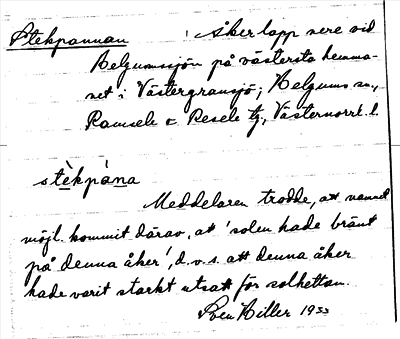 Stekpannan Åkerlapp nere vid
Helgumssjön på västersta hemma-
net i Västergransjö; Helgums sn,
Ramsele & Resele tg, Västernorrl. l.
stèkpàna
Meddelaren trodde, att namnet
möjl. kommit därav, att 'solen hade bränt
på denna åker', d.v.s. att denna åker
hade varit starkt utsatt för solhettan.
Sven Hiller 1933